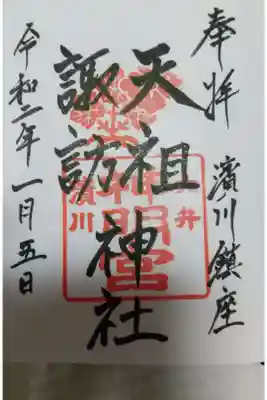 奉拝 濱川鎮座
天祖
諏訪
神社
神明宮
井
濱川
令和二年一月五日